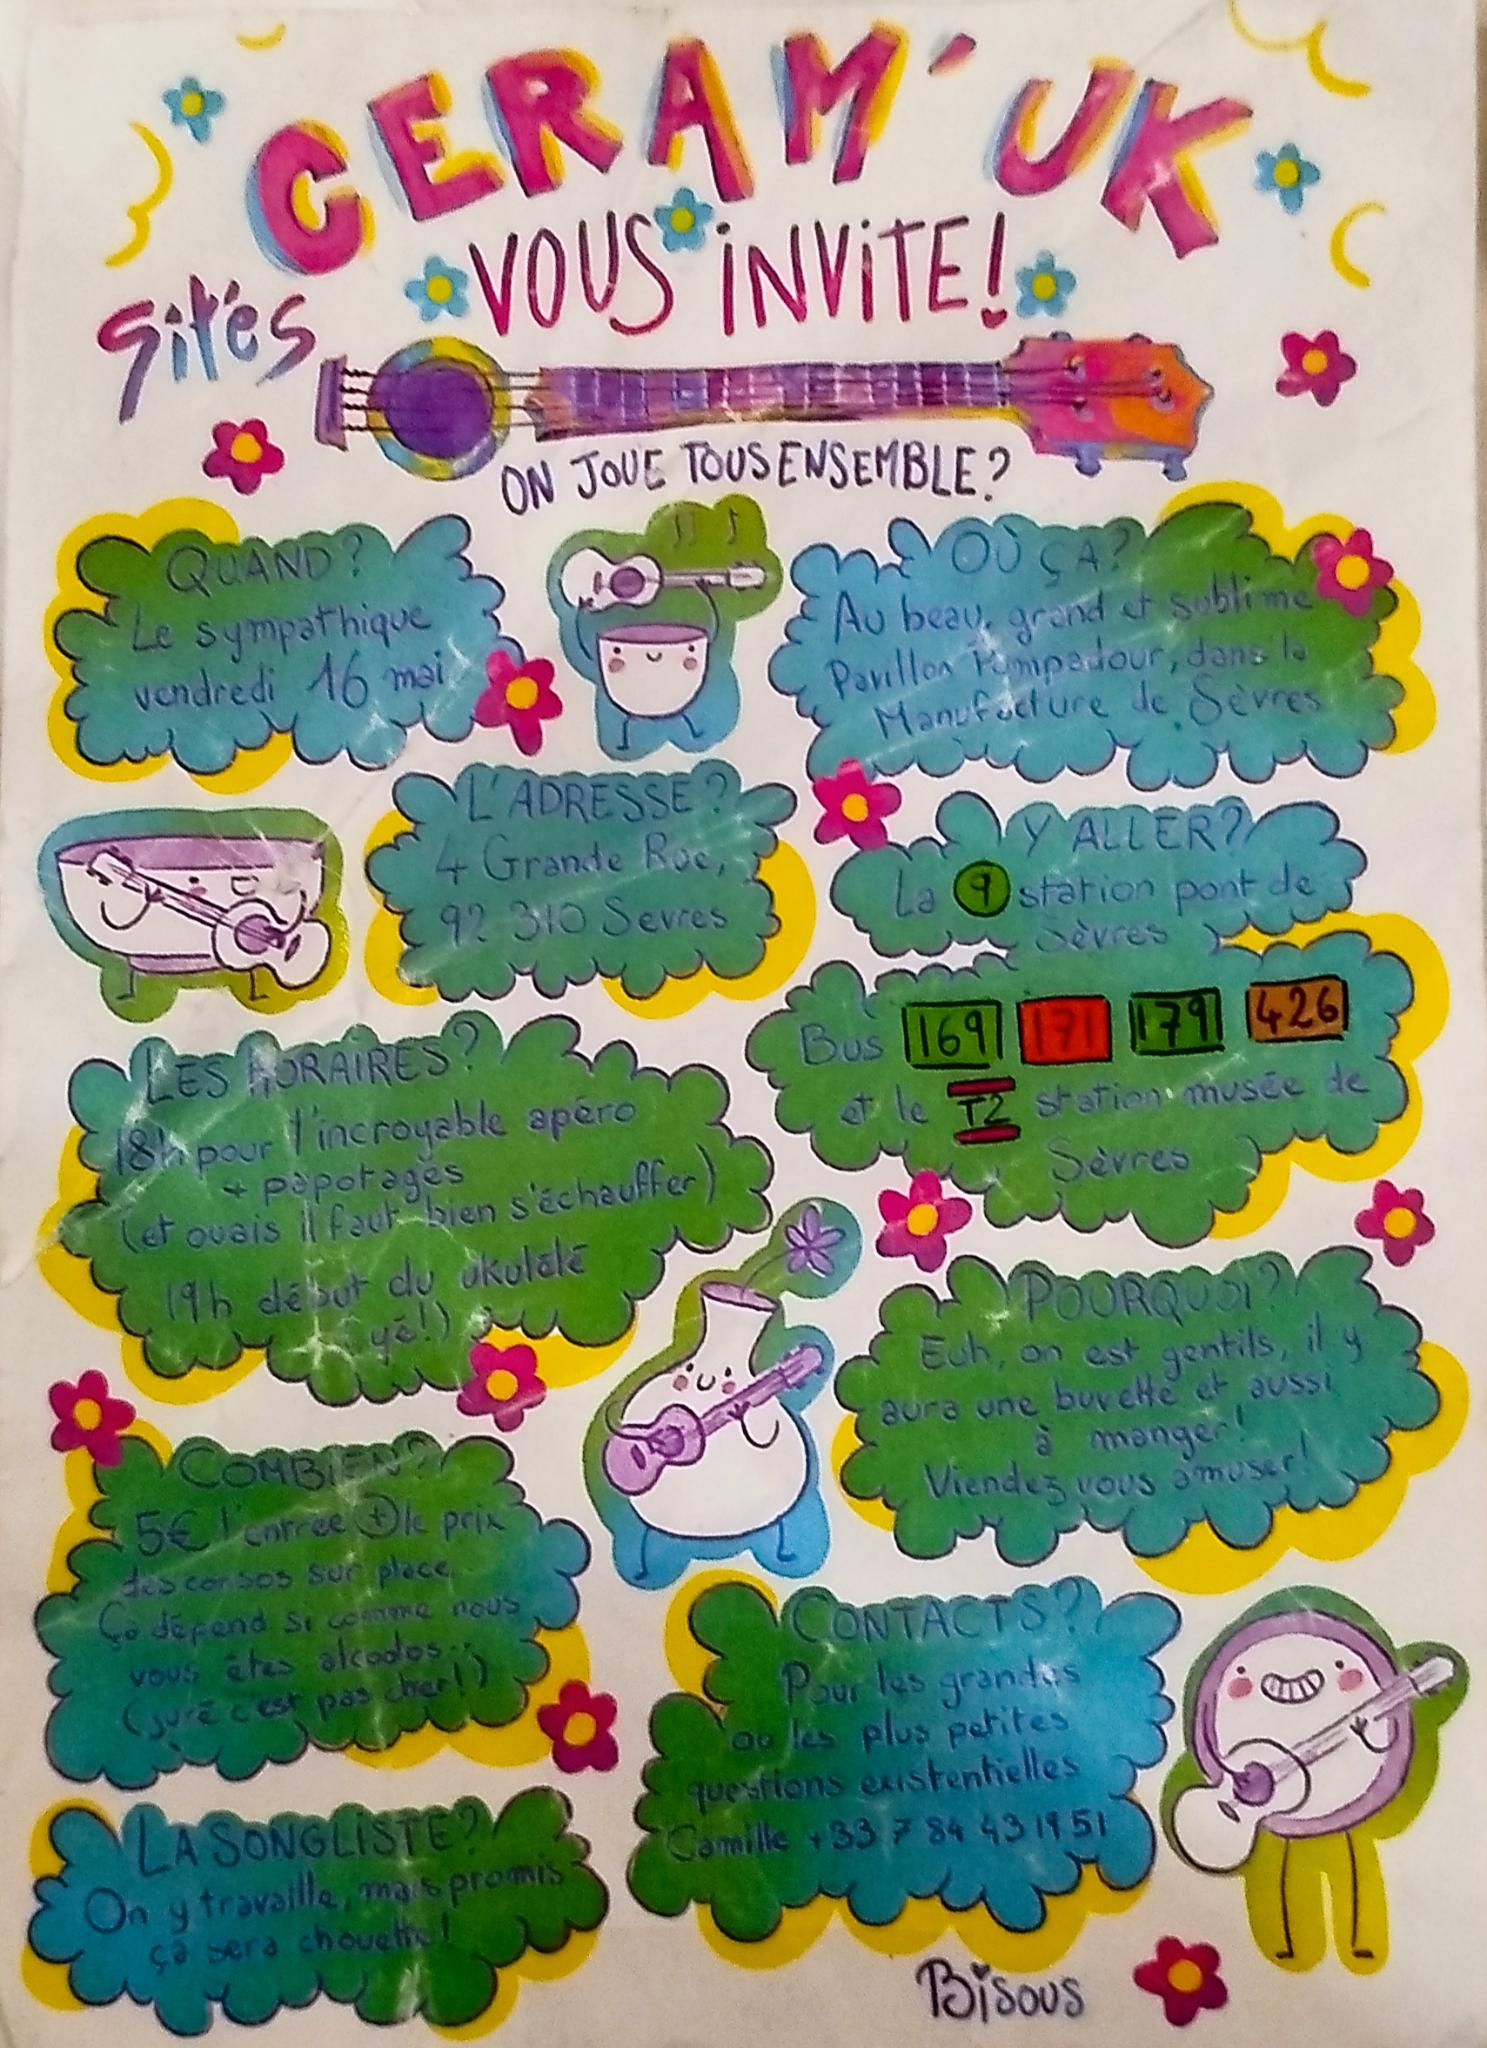 CERAM'UK
VOUS INVITE!
ON JOUE TOUS ENSEMBLE?
QUAND?
Le sympathique
vendredi 16 mai
OÙ ÇA?
Au beau, grand et sublime
Pavillon Pompadour, dans la
Manufacture de Sèvres
L'ADRESSE?
4 Grande Rue,
92 310 Sevres
Y ALLER?
La 9 station pont de
Sèvres
Bus 169 171 179 426
et le T2 station musée de
Sèvres
LES HORAIRES?
18h pour l'incroyable apéro
+ papotages
(et ouais il faut bien s'échauffer)
19h début du ukulélé
yé!)
POURQUOI?
Euh, on est gentils, il y
aura une buvette et aussi
à manger!
Viendez vous amuser!
COMBIEN?
5€ l'entrée + le prix
des consos sur place
Ça dépend si comme nous
vous êtes alcoolos...
(juré c'est pas cher!)
CONTACTS?
Pour les grandes
ou les plus petites
questions existentielles
Camille +33 7 84 43 19 51
LA SONGLISTE?
On y travaille, mais promis
ça sera chouette!
Bisous